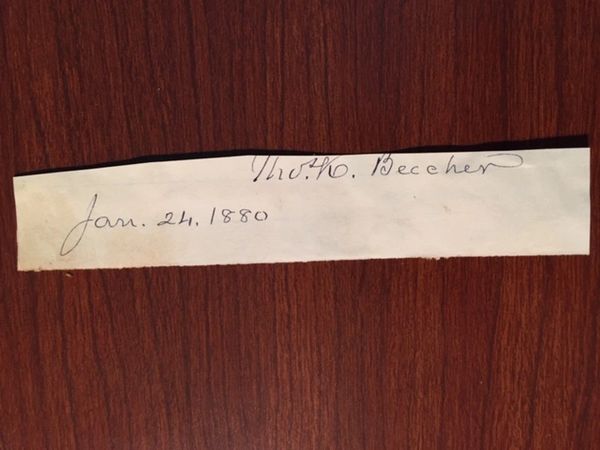 Tho. K. Beecher
Jan. 24. 1880